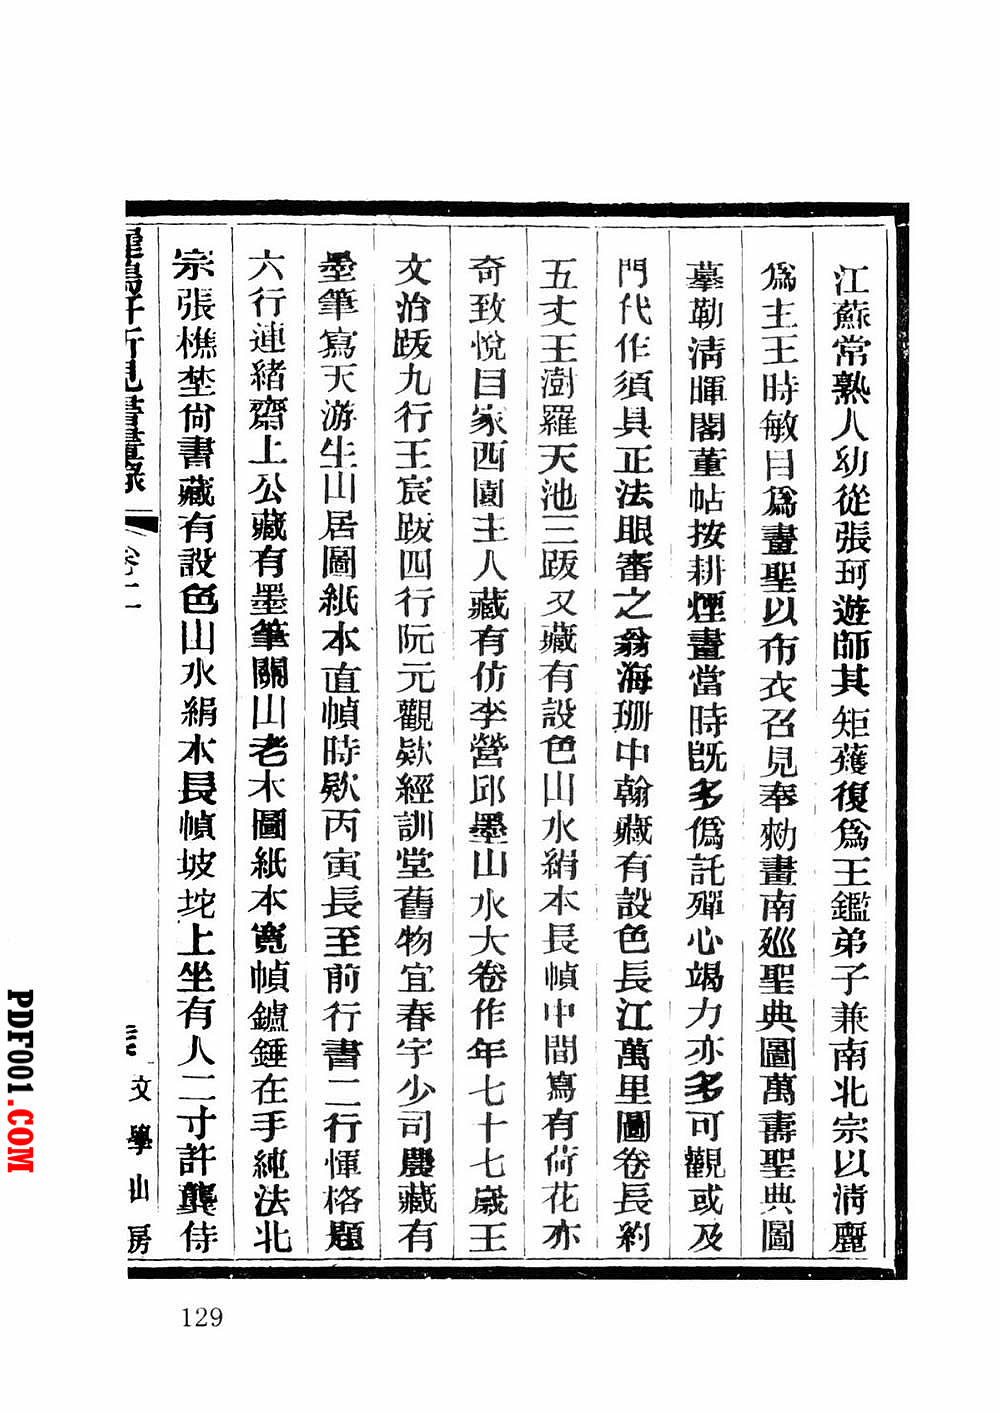 江蘇常熟人幼從張珂遊師其矩蒦復爲王鑑弟子兼南北宗以清麗
爲主王時敏目爲畫聖以布衣召見奉勑畫南廵聖典圖萬壽聖典圖
摹勒清暉閣董帖按耕煙畫當時旣多僞託殫心竭力亦多可觀或及
門代作須具正法眼審之翁海珊中翰藏有設色長江萬里圖卷長約
五丈王澍羅天池三跋又藏有設色山水絹本長幀中間寫有荷花亦
奇致悅目家西園主人藏有仿李營邱墨山水大卷作年七十七歲王
文治跋九行王宸跋四行阮元觀欵經訓堂舊物宜春宇少司農藏有
墨筆寫天游生山居圖紙本直幀時欵丙寅長至前行書二行惲格題
六行蓮緒齋上公藏有墨筆關山老木圖紙本寬幀鑪錘在手純法北
宗張樵埜尙書藏有設色山水絹本長幀坡坨上坐有人二寸許龔侍
見書畫錄
卷二
文學山房
129
PDF001.COM